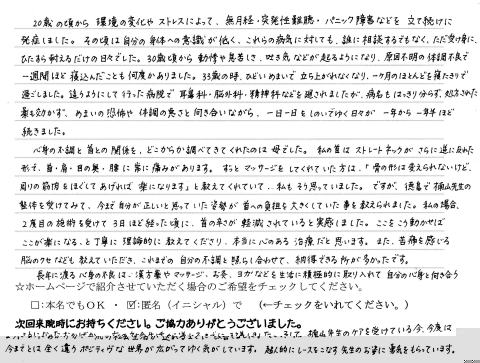 20歳の頃から 環境の変化や ストレスによって、無月経・突発性難聴・パニック障害などを 立て続けに
発症しました。その頃は自分の身体への意識が低く、これらの病気に対しても、誰に相談するでもなく、ただ受け身に、
ひたすら耐えるだけの日々でした。30歳頃から 動悸や息苦しさ、吐き気などが起るようになり、原因不明の体調不良で
一週間ほど寝込んだことも何度かありました。33歳の時、ひどいめまいで 立ち上がれなくなり、一ヶ月のほとんどを寝たきりで
過ごしました。這うようにして行った病院で 耳鼻科・脳外科・精神科などを廻されましたが、病名もはっきり分らず、処方された
薬も効かず、めまいの恐怖や 体調の悪さと向き合いながら、一日一日をしのいでゆく日々が 一年から一年半ほど
続きました。
心身の不調と首との関係を、どこからか調べてきてくれたのは母でした。私の首は ストレートネックが さらに逆に反れた
形で、首・肩・目の奥・腰に常に痛みがあります。ずっとマッサージをしてくれていた方は、「骨の形は変えられないけど、
周りの筋肉をほぐしてあげれば 楽になります」と教えてくれていて、私もそう思っていました。ですが、徳島で 檜山先生の
整体を受けてみて、今まで自分が正しいと思っていた姿勢が首への負担を大きくしていた事を教えられました。私の場合、
2度目の施術を受けて 3日ほど経った頃に、首の辛さが軽減されていると実感しました。ここをこう動かせば
ここが楽になる、と丁寧に 理論的に教えてくださり、本当に心のある治療だと思います。また、苦痛を感じる
脳のクセなども教えていただき、これまでの 自分の不調と照らし合わせて、納得できる所が多かったです。
長年に渡る心身の不良は、漢方薬やマッサージ、お灸、ヨガなどを生活に積極的に取り入れて 自分の心身と向き合う
☆ホームページで紹介させていただく場合のご希望をチェックしてください。
□:本名でもOK ・ ☑:匿名（イニシャル）で （←チェックをいれてください。）
次回来院時にお持ちください。ご協力ありがとうございました。
檜山先生のケアを受けている今、今度は
今までとは全く違うポジティブな世界が広がってゆく気がしています。超人的にレースをこなす先生のお姿に勇気をもらっています。